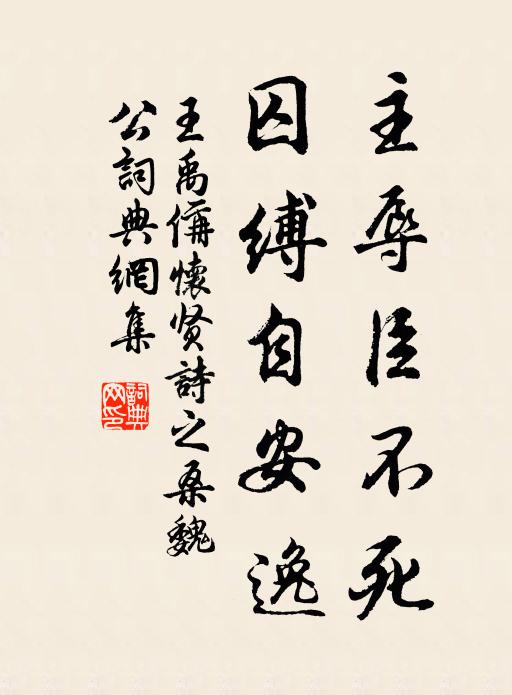 主辱臣不死
囚縛自安逸
王禹偁懷贤詩之桑魏
公詞典網集
詞典
网印